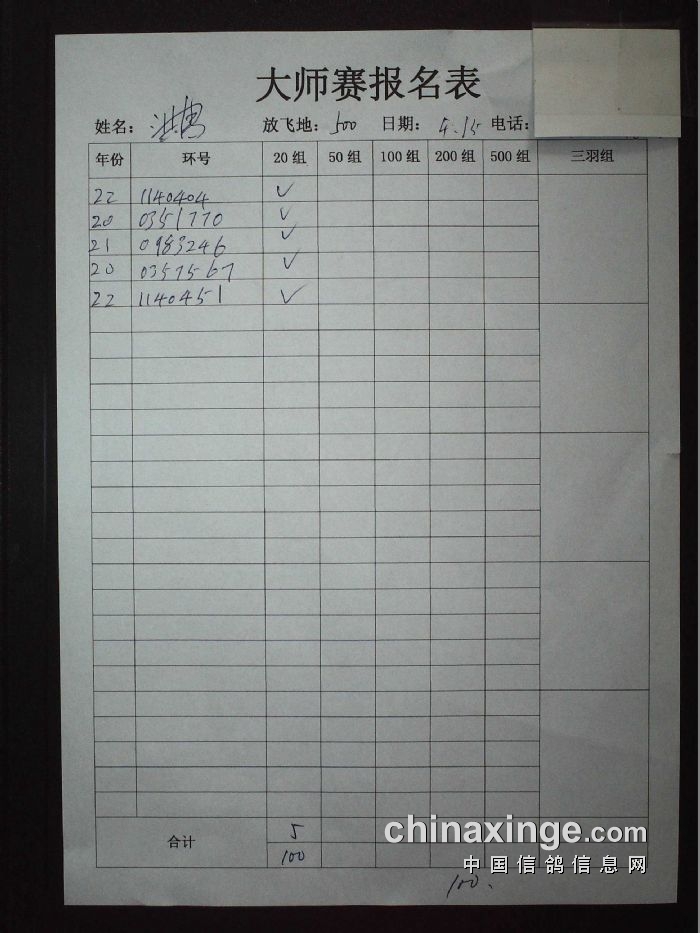 大师赛报名表
姓名： 放飞地：500 日期：4.15 电话：
年份 环号 20组 50组 100组 200组 500组 三羽组
22 1140404 ✓
20 0351770 ✓
21 0983246 ✓
20 0357567 ✓
22 1140451 ✓
合计 5
100
100.
chinaxinge.com
中国信鸽信息网